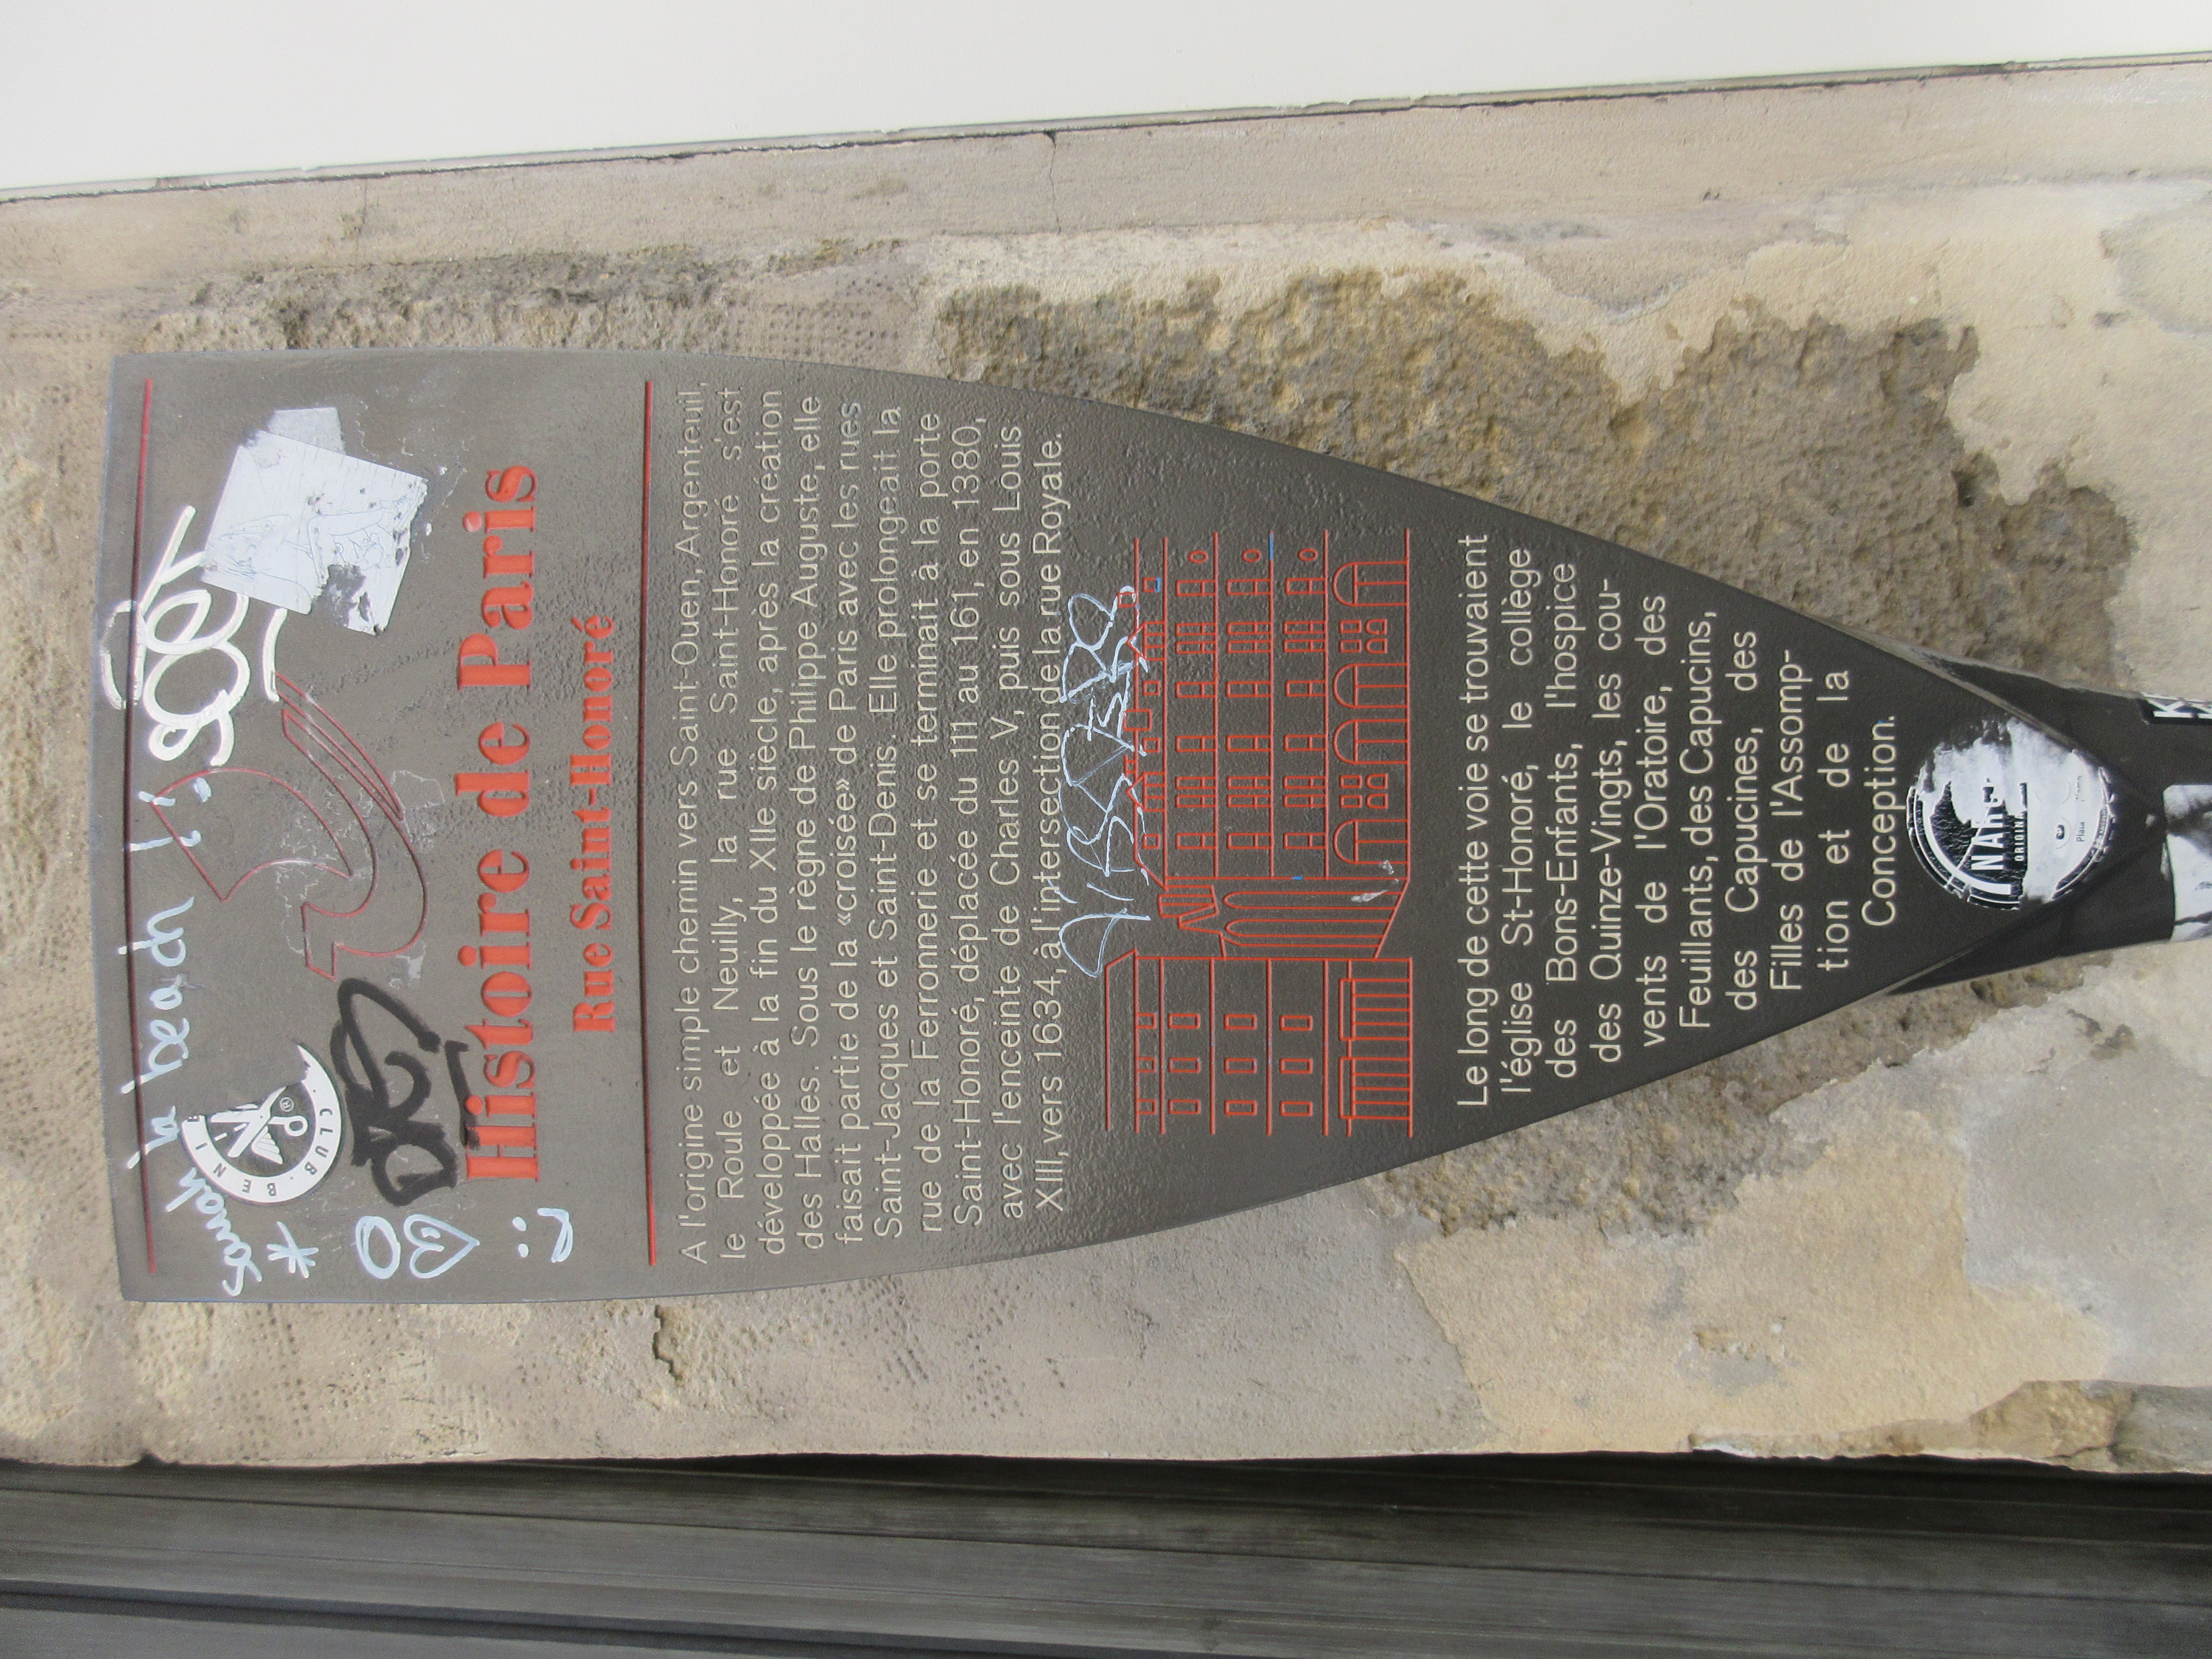 la beach !
CLUB BENI
Histoire de Paris
Rue Saint-Honoré
A l'origine simple chemin vers Saint-Ouen, Argenteuil,
le Roule et Neuilly, la rue Saint-Honoré s'est
développée à la fin du XIIe siècle, après la création
des Halles. Sous le règne de Philippe Auguste, elle
faisait partie de la «croisée» de Paris avec les rues
Saint-Jacques et Saint-Denis. Elle prolongeait la
rue de la Ferronnerie et se terminait à la porte
Saint-Honoré, déplacée du 111 au 161, en 1380,
avec l'enceinte de Charles V, puis sous Louis
XIII, vers 1634, à l'intersection de la rue Royale.
Le long de cette voie se trouvaient
l'église St-Honoré, le collège
des Bons-Enfants, l'hospice
des Quinze-Vingts, les cou-
vents de l'Oratoire, des
Feuillants, des Capucins,
des Capucines, des
Filles de l'Assomp-
tion et de la
Conception.